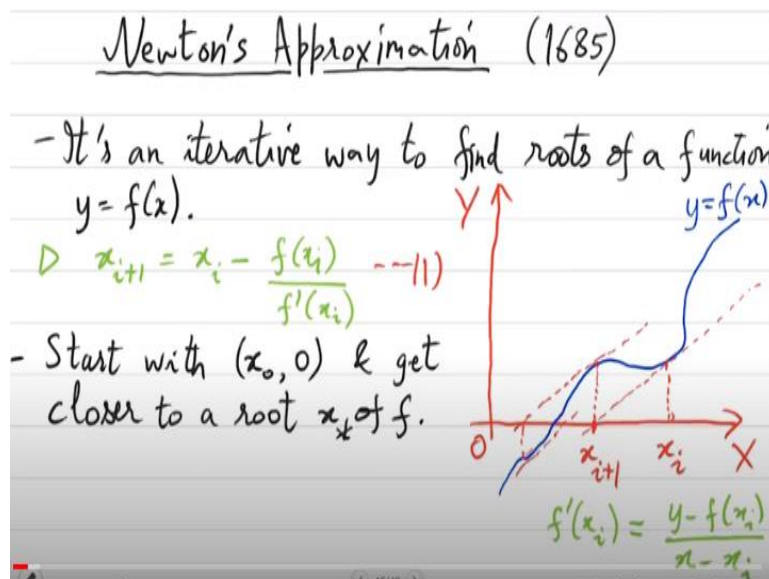 Newton's Approximation (1685)
- It's an iterative way to find roots of a function
y = f(x).
▷ x_{i+1} = x_i - f(x_i) / f'(x_i) ---(1)
- Start with (x_0, 0) & get
closer to a root x_* of f.
Y
y=f(x)
0
x_{i+1}
x_i
X
f'(x_i) = y - f(x_i) / x - x_i